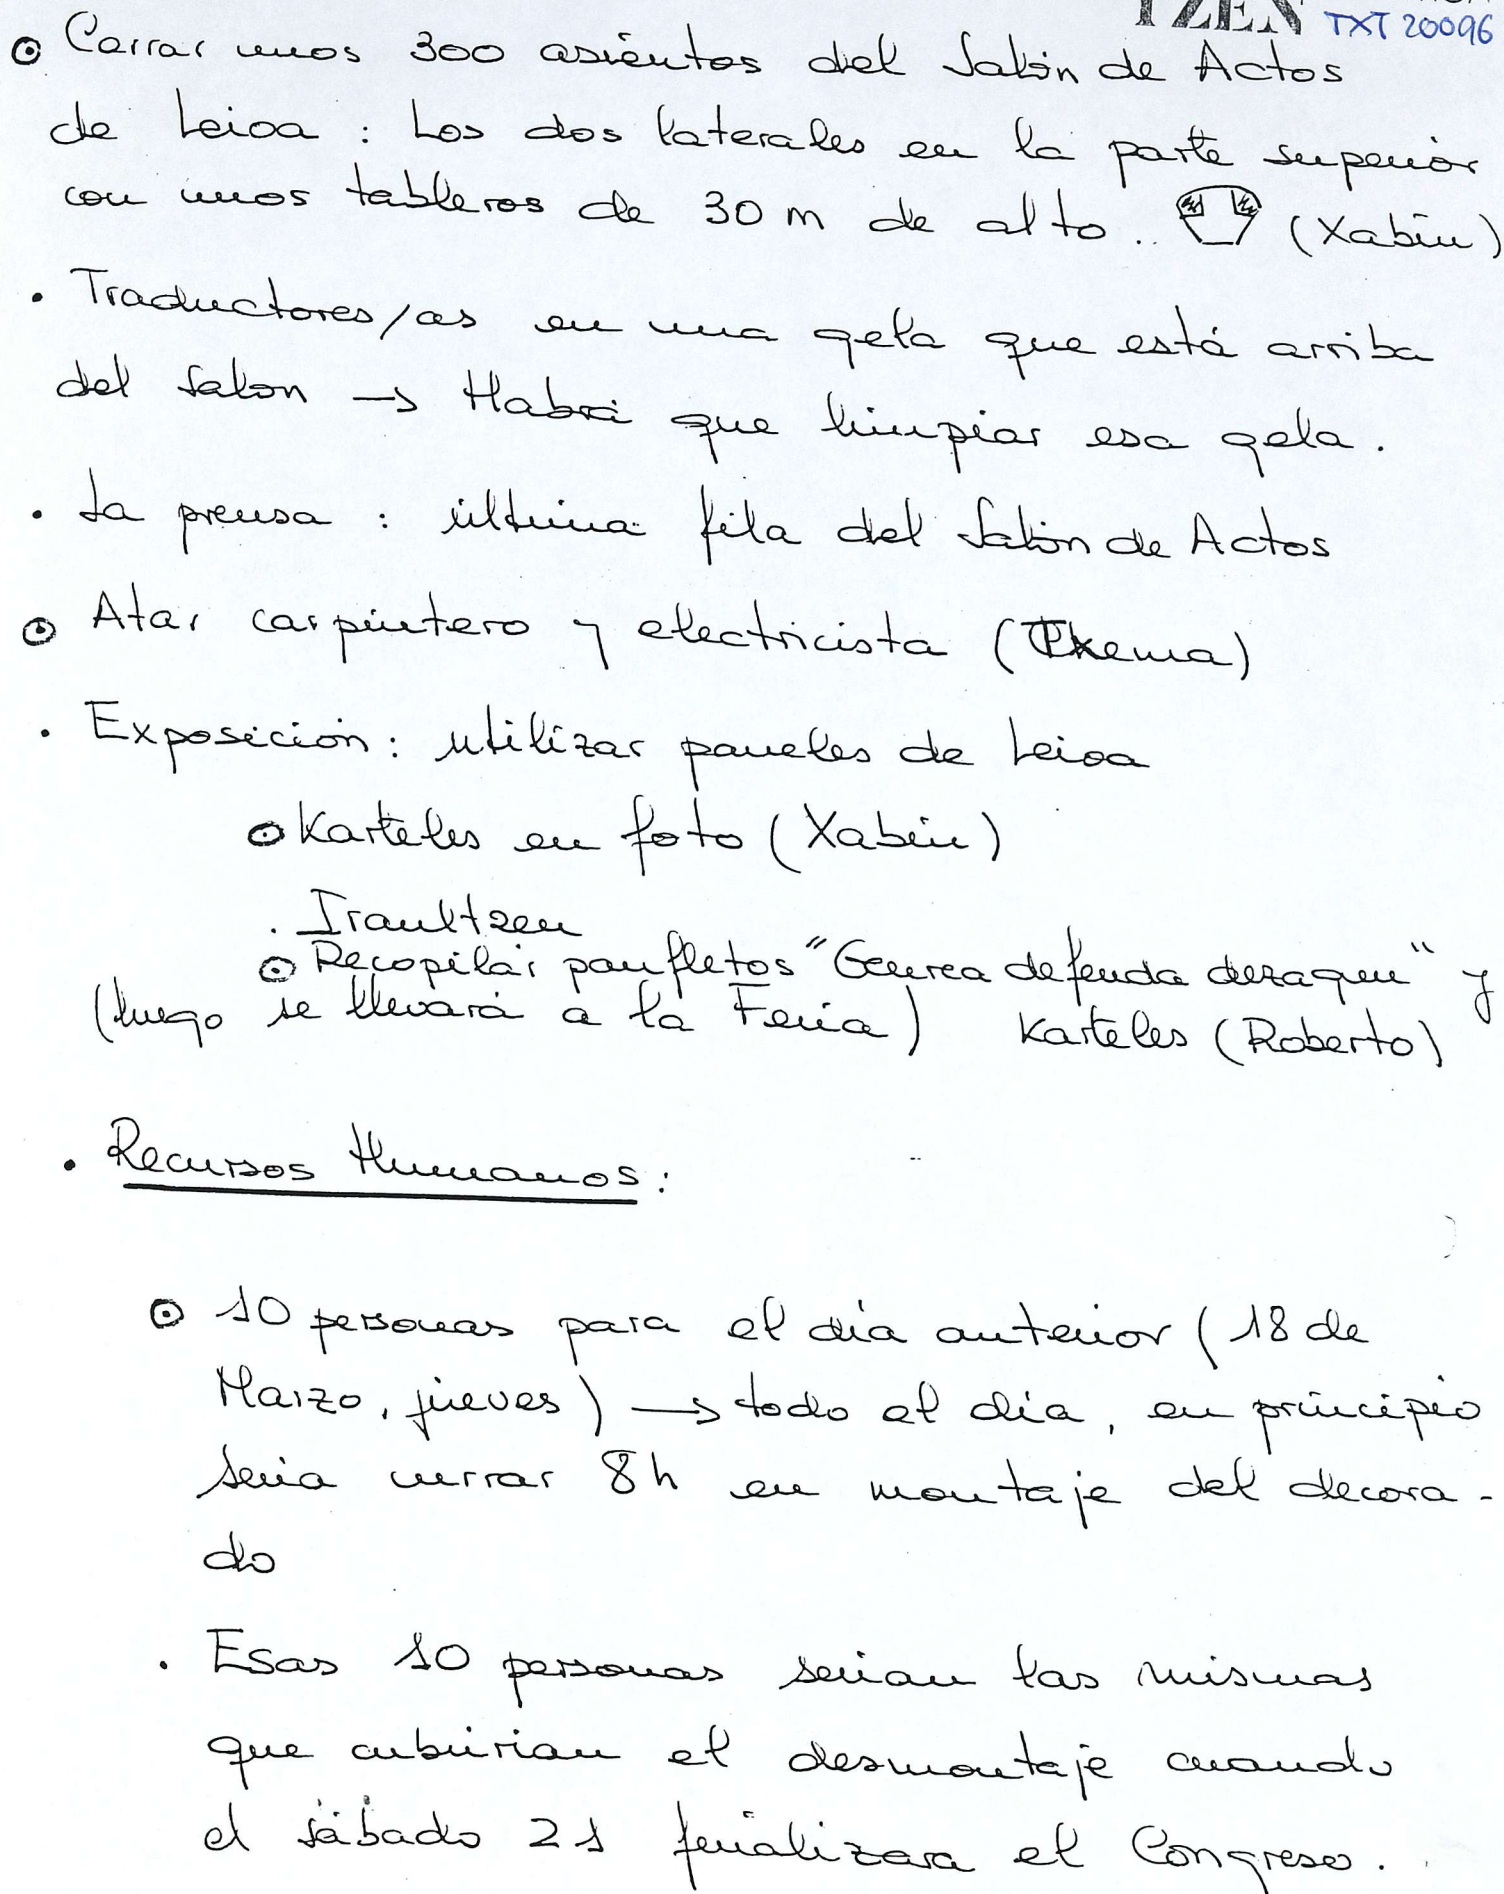 TXT 20096
⊙ Carrar unos 300 asientos del Salón de Actos
de Leioa : Los dos laterales en la parte superior
con unos tableros de 30 m de alto .. (Xabin)
. Traductores/as en una gela que está arriba
del Salon → Habrá que limpiar esa gela.
. La prensa : última fila del Salón de Actos
⊙ Atar carpintero y electricista (Txema)
. Exposición: utilizar paneles de Leioa
⊙ Karteles en foto (Xabin)
. Iraultzen
⊙ Recopilar panfletos "Geurea defenda dezagun" y
(luego se llevará a la Feria) Karteles (Roberto)
. Recursos Humanos:
⊙ 10 personas para el día anterior (18 de
Marzo, jueves) → todo el día, en principio
seria currar 8h en montaje del decora-
do
. Esas 10 personas serian las mismas
que cubririan el desmontaje cuando
el sábado 21 finalizara el Congreso.